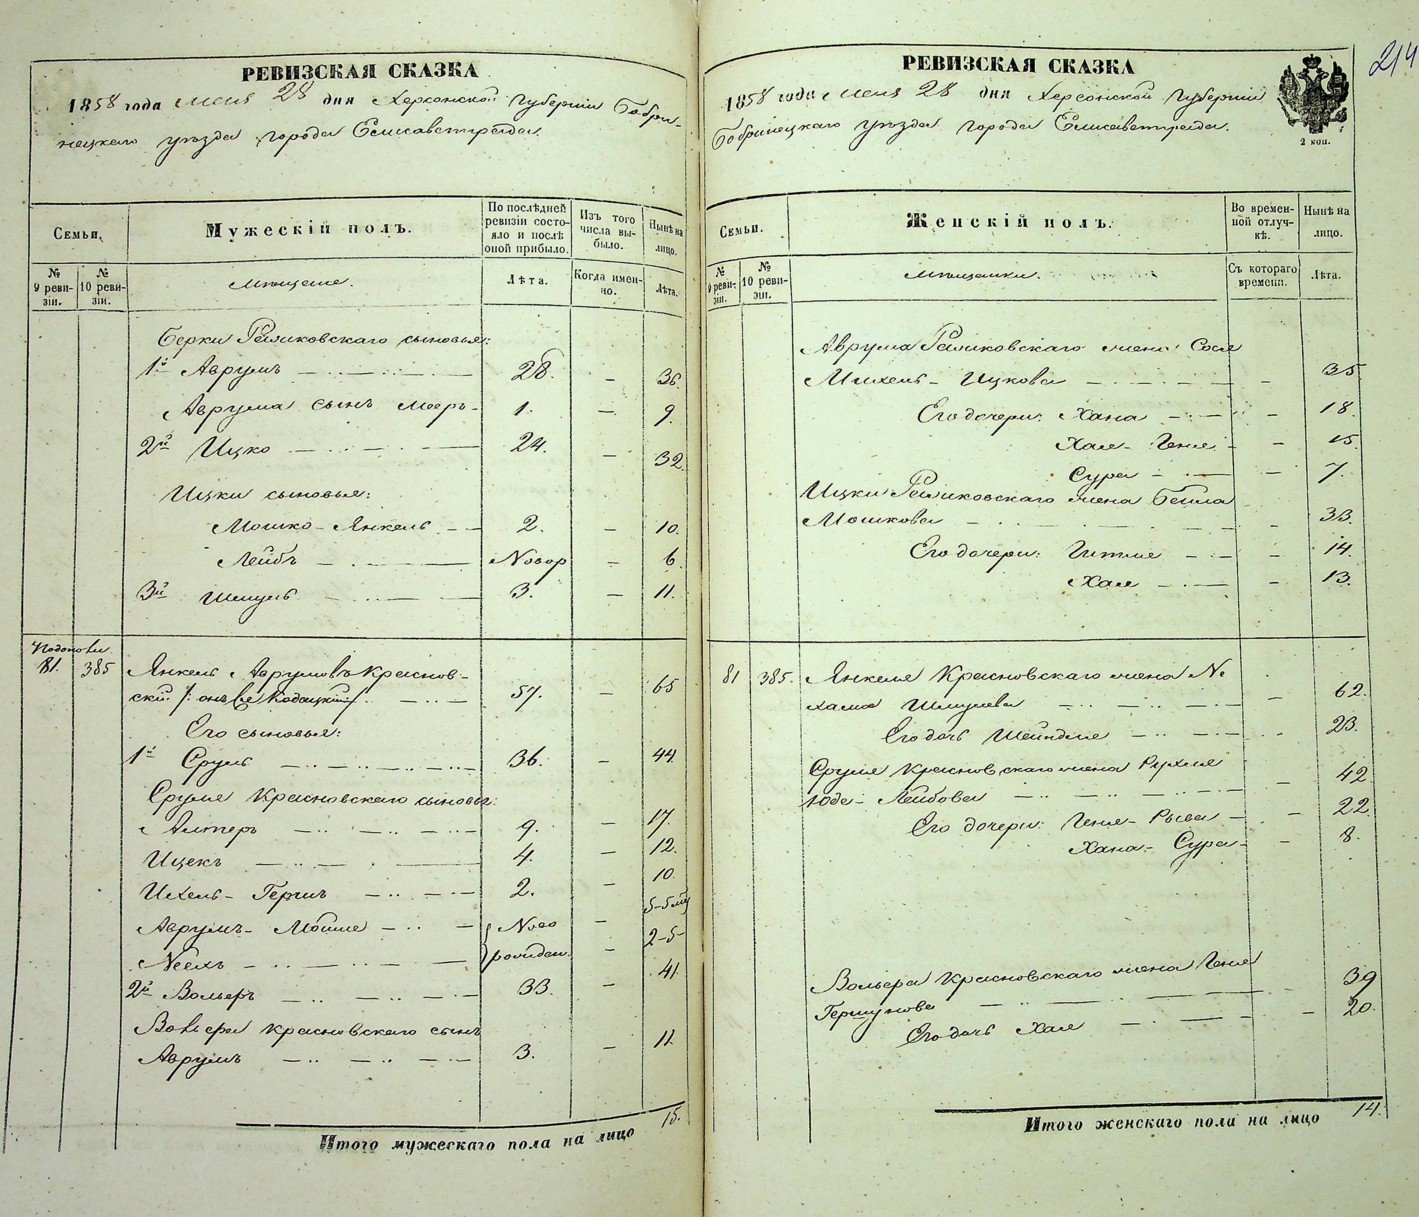 214
РЕВИЗСКАЯ СКАЗКА
1858 года Мая 28 дня Херсонской Губернии Бобри-
нецкаго уѣзда города Елисаветграда.
Семьи.
Мужескій полъ.
По послѣдней ревизіи состояло и послѣ оной прибыло.
Изъ того числа выбыло.
Нынѣ на лицо.
№ 9 ревизіи.
№ 10 ревизіи.
Мѣщане.
Лѣта.
Когда именно.
Лѣта.
Берки сыновья:
1й Аврумъ 28. – 36.
Аврума сынъ Мееръ 1. – 9.
2й Ицко 24. – 32.
Ицки сыновья:
Мошко-Янкель 2. – 10.
Лейбъ Новор – 6.
3й Шмуль 3. – 11.
81. 385 Янкель Аврумовъ Краснов-
ский /: онъ же 57. – 65
Его сыновья:
1й Сруль 36. – 44.
Сруля Красновскаго сыновья:
Алтеръ 9. – 17.
Ицекъ 4. – 12.
Ихель-Гершъ 2. – 10.
Аврумъ-Мойше Ново – 5-5
рожден. – 2-5-
2й Вольфъ 33. – 41.
Вольфа Красновскаго сынъ
Аврумъ 3. – 11.
Итого мужескаго пола на лицо 15.
РЕВИЗСКАЯ СКАЗКА
1858 года Мая 28 дня Херсонской Губерніи
Бобринецкаго уѣзда города Елисаветграда.
2 коп.
Семьи.
Женскій полъ.
Во временной отлучкѣ.
Нынѣ на лицо.
№ 9 ревизіи.
№ 10 ревизіи.
Мѣщанки.
Съ котораго времени.
Лѣта.
Аврума жена Сося
Михель-Ицкова – 35.
Его дочери: Хана – 18.
Хая-Геня – 15.
Сура – 7.
Ицки жена Бейла
Мошкова – 33.
Его дочери: Гитля – 14.
Хая – 13.
81 385. Янкеля Красновскаго жена Не
хама Шмулева – 62.
Его дочь Шейндля 23.
Сруля Красновскаго жена Рухля
Юда-Лейбова – 42
Его дочери: Геня-Рыва – 22.
Хана-Сура – 8.
Вольфа Красновскаго жена Геня
Гершунова 39
Его дочь Хая – 20.
Итого женскаго пола на лицо 14.